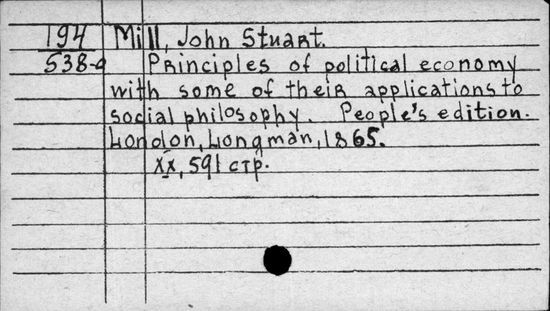 194 Mill, John Stuart.
538-a Principles of political economy
with some of their applications to
social philosophy. People's edition.
London, Longman, 1865.
XX, 591 стр.